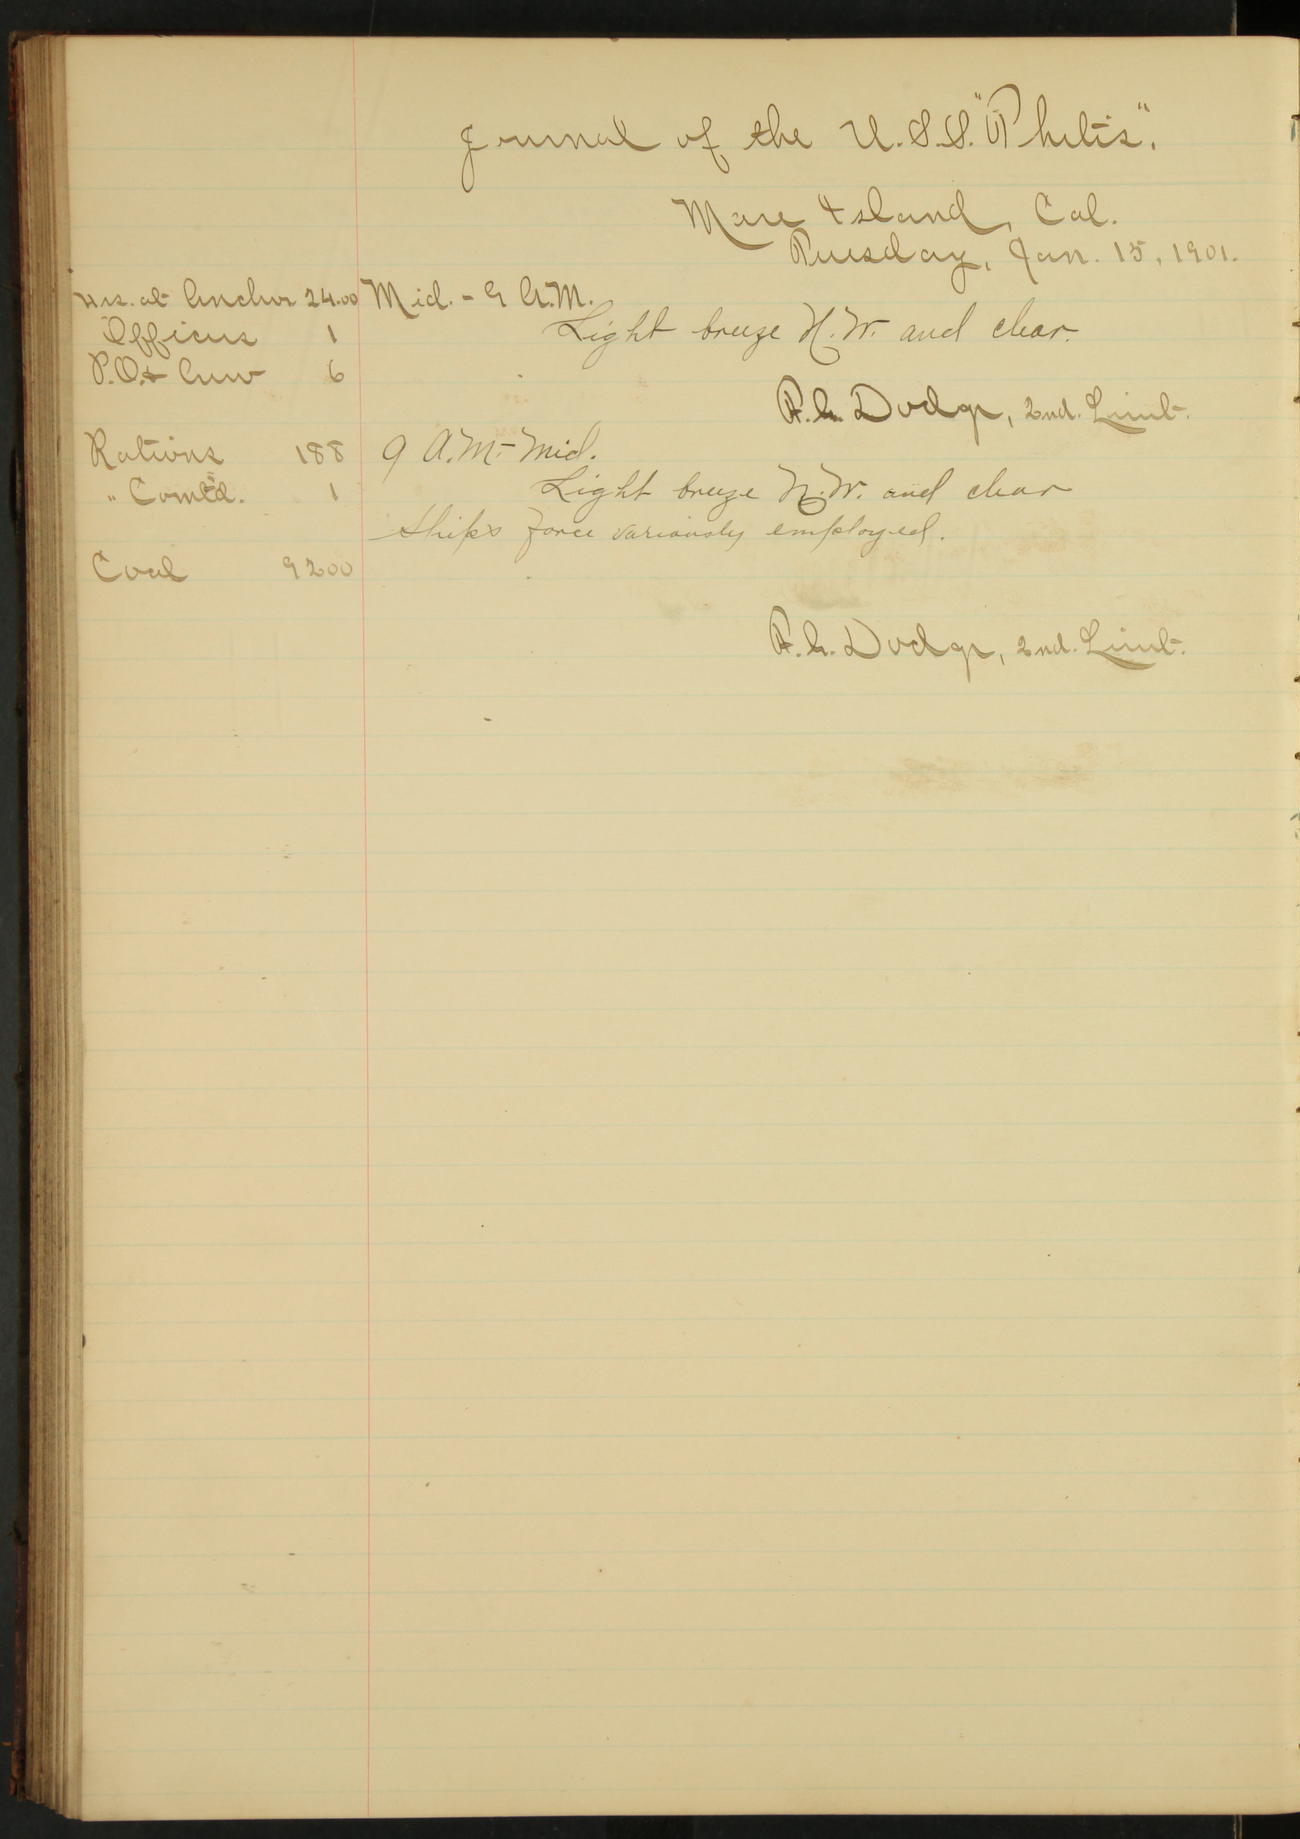 Journal of the U.S.S. "Thetis".
Mare Island, Cal.
Tuesday, Jan. 15, 1901.
Hrs. at Anchor 24.00
Officers 1
P.O. & Crew 6
Rations 188
" Com't'd. 1
Coal 9200
Mid. - 9 A.M.
Light breeze N.W. and clear.
F.G. Dodge, 2nd. Lieut.
9 A.M. - Mid.
Light breeze N.W. and clear
Ships force variously employed.
F.G. Dodge, 2nd. Lieut.